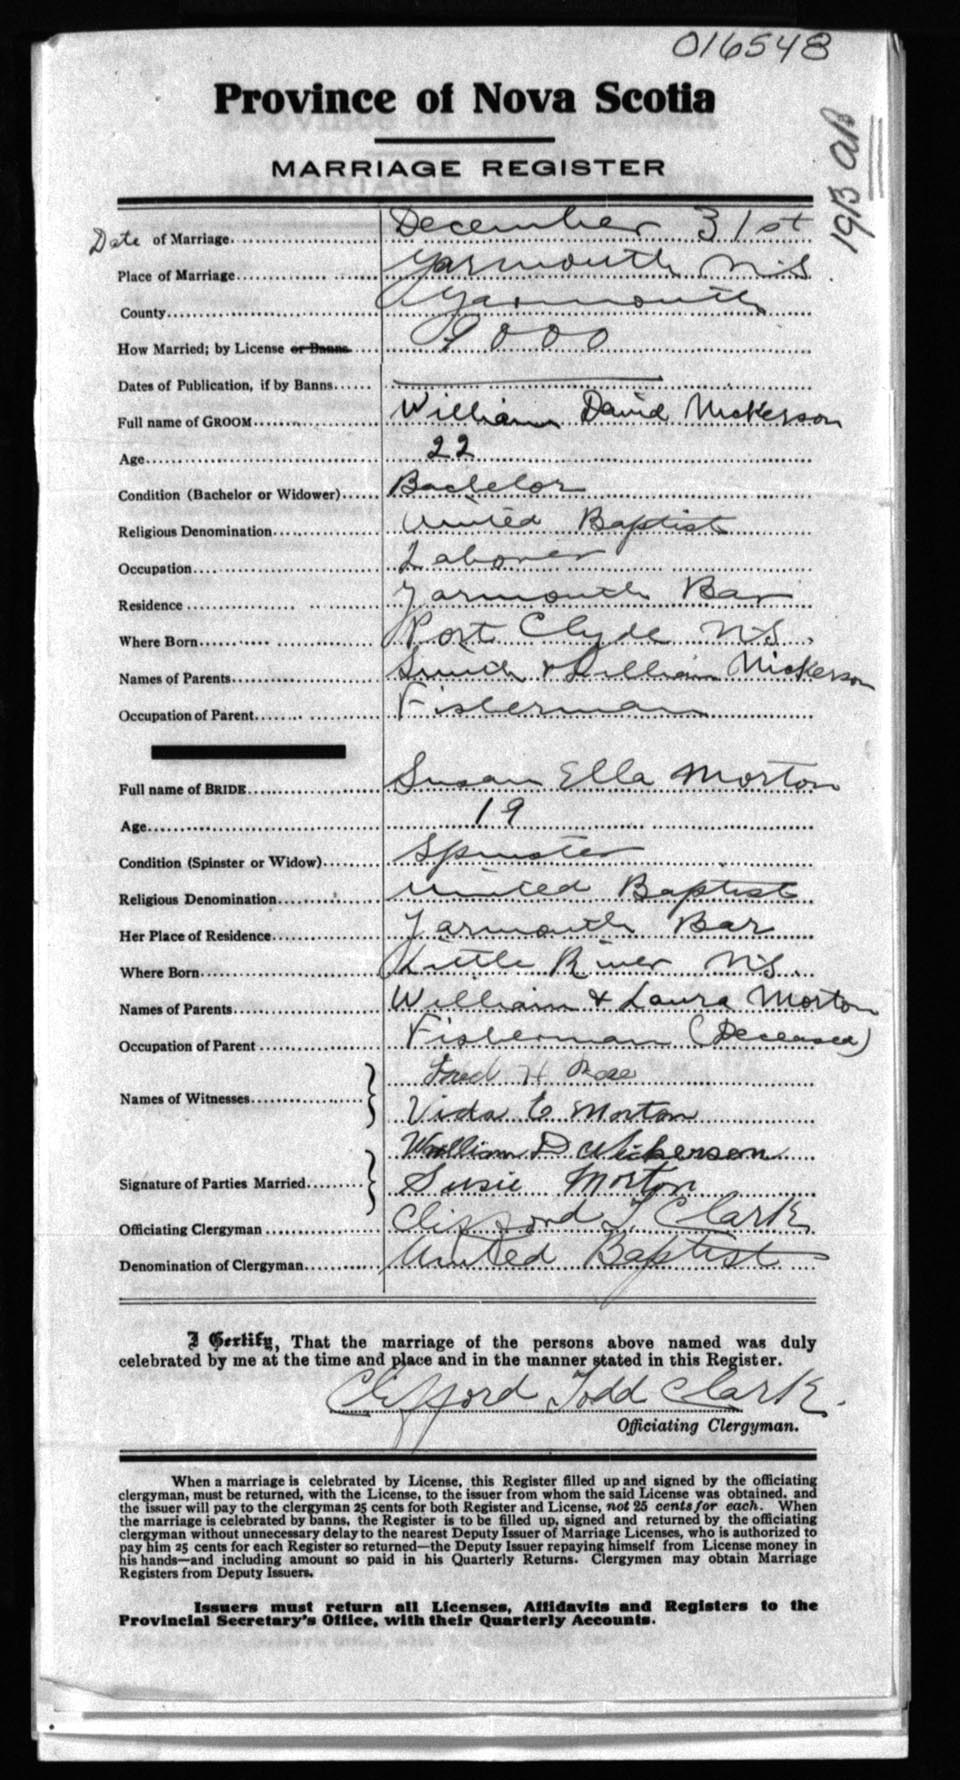 016548
Province of Nova Scotia
MARRIAGE REGISTER
Date of Marriage December 31st
Place of Marriage Yarmouth N.S.
County Yarmouth
How Married; by License or Banns 9000
Dates of Publication, if by Banns
Full name of GROOM William David Nickerson
Age 22
Condition (Bachelor or Widower) Bachelor
Religious Denomination United Baptist
Occupation Laborer
Residence Yarmouth Bar
Where Born Port Clyde N.S.
Names of Parents Smith & Lillian Nickerson
Occupation of Parent Fisherman
Full name of BRIDE Susan Ella Morton
Age 19
Condition (Spinster or Widow) Spinster
Religious Denomination United Baptist
Her Place of Residence Yarmouth Bar
Where Born Little River N.S.
Names of Parents William & Laura Morton
Occupation of Parent Fisherman (Deceased)
Names of Witnesses Fred H
Vida E Morton
Signature of Parties Married William D Nickerson
Susie Morton
Officiating Clergyman Clifford T. Clark
Denomination of Clergyman United Baptist
I Certify, That the marriage of the persons above named was duly
celebrated by me at the time and place and in the manner stated in this Register.
Clifford Todd Clark.
Officiating Clergyman.
When a marriage is celebrated by License, this Register filled up and signed by the officiating
clergyman, must be returned, with the License, to the issuer from whom the said License was obtained, and
the issuer will pay to the clergyman 25 cents for both Register and License, not 25 cents for each. When
the marriage is celebrated by banns, the Register is to be filled up, signed and returned by the officiating
clergyman without unnecessary delay to the nearest Deputy Issuer of Marriage Licenses, who is authorized to
pay him 25 cents for each Register so returned—the Deputy Issuer repaying himself from License money in
his hands—and including amount so paid in his Quarterly Returns. Clergymen may obtain Marriage
Registers from Deputy Issuers.
Issuers must return all Licenses, Affidavits and Registers to the
Provincial Secretary's Office, with their Quarterly Accounts.